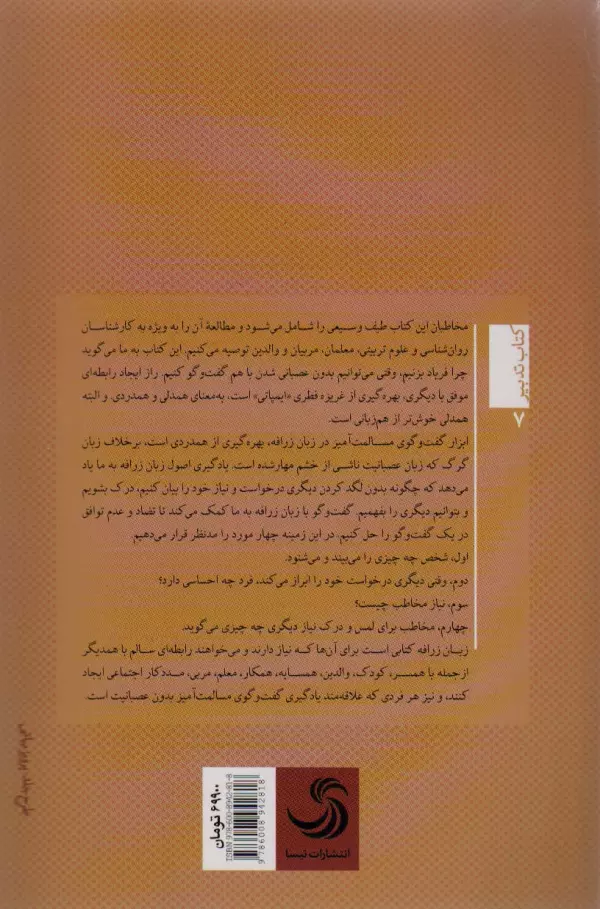 کتاب تدبیر
۷
مخاطبان این کتاب طیف وسیعی را شامل می‌شود و مطالعهٔ آن را به ویژه به کارشناسان
روان‌شناسی و علوم تربیتی، معلمان، مربیان و والدین توصیه می‌کنیم. این کتاب به ما می‌گوید
چرا فریاد بزنیم، وقتی می‌توانیم بدون عصبانی شدن با هم گفت‌وگو کنیم. راز ایجاد رابطه‌ای
موفق با دیگری، بهره‌گیری از غریزه فطری «ایمپاتی» است. به‌معنای همدلی و همدردی. و البته
همدلی خوش‌تر از هم‌زبانی است.
ابزار گفت‌وگوی مسالمت‌آمیز در زبان زرافه، بهره‌گیری از همدردی است، برخلاف زبان
گرگ که زبان عصبانیت ناشی از خشم مهارشده است. یادگیری اصول زبان زرافه به ما یاد
می‌دهد که چگونه بدون لگد کردن دیگری درخواست و نیاز خود را بیان کنیم، درک بشویم
و بتوانیم دیگری را بفهمیم. گفت‌وگو با زبان زرافه به ما کمک می‌کند تا تضاد و عدم توافق
در یک گفت‌وگو را حل کنیم. در این زمینه چهار مورد را مدنظر قرار می‌دهیم.
اول، شخص چه چیزی را می‌بیند و می‌شنود.
دوم، وقتی دیگری درخواست خود را ابراز می‌کند، فرد چه احساسی دارد؟
سوم، نیاز مخاطب چیست؟
چهارم، مخاطب برای لمس و درک نیاز دیگری چه چیزی می‌گوید.
زبان زرافه کتابی است برای آن‌ها که نیاز دارند و می‌خواهند رابطه‌ای سالم با همدیگر
ازجمله با همسر، کودک، والدین، همسایه، همکار، معلم، مربی، مددکار اجتماعی ایجاد
کنند، و نیز هر فردی که علاقه‌مند یادگیری گفت‌وگوی مسالمت‌آمیز بدون عصبانیت است.
طرح جلد:
۶۹۹۰۰ تومان
ISBN 978-600-8942-81-8
9 786008 942818
انتشارات تیسا